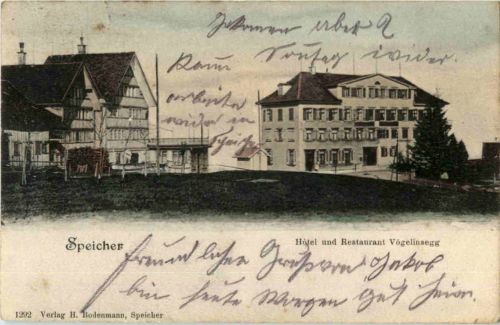 Jakomen erbet R
Sonntag wider.
Kann
arbeite
wider in
Speicher
Hôtel und Restaurant Vögelinsegg
Freundlichen Gruss von Jakob
bin heute Morgen gut heim.
1292 Verlag H. Bodenmann, Speicher